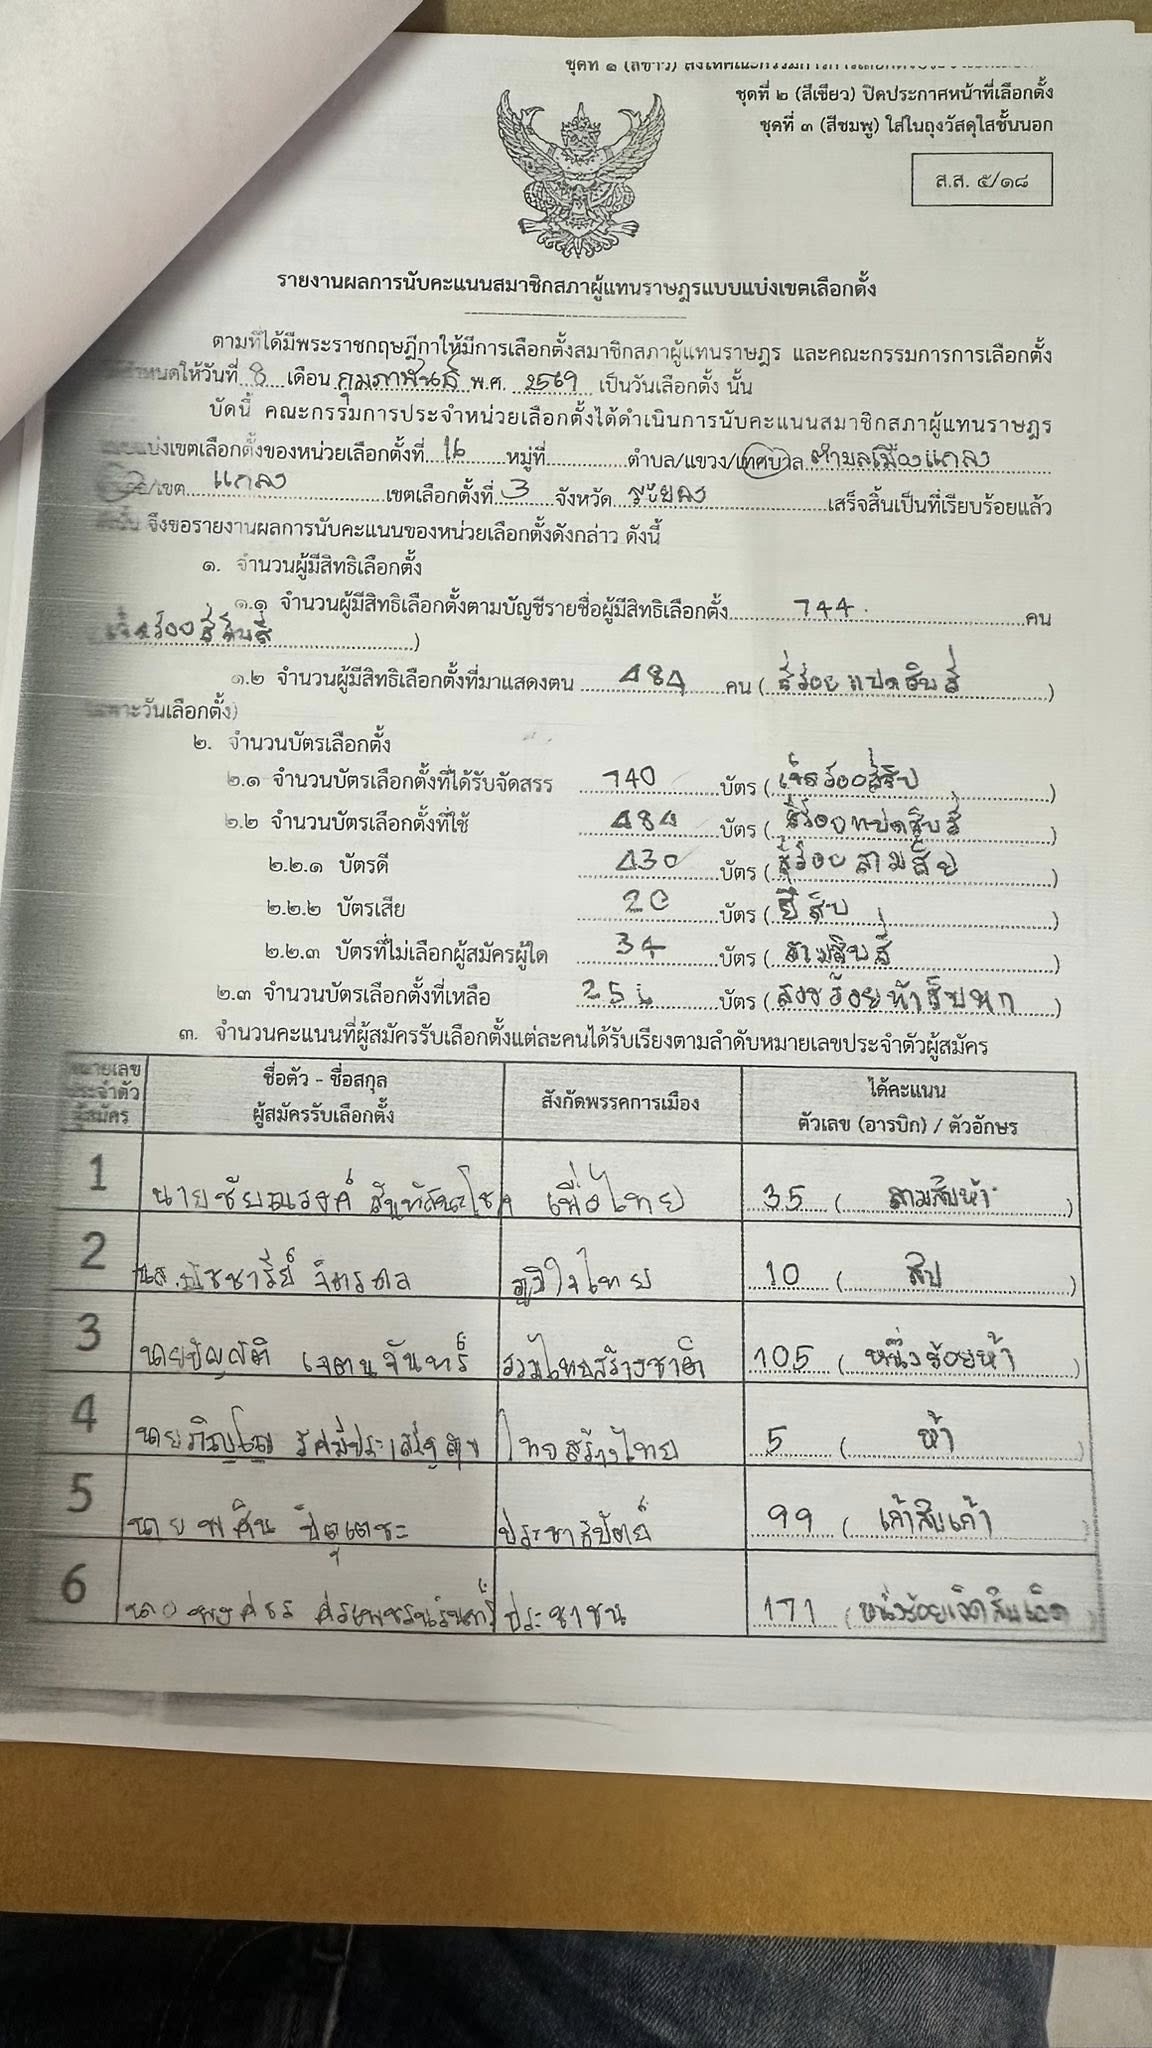 ชุดที่ ๑ (สีขาว)
ชุดที่ ๒ (สีเขียว) ปิดประกาศหน้าที่เลือกตั้ง
ชุดที่ ๓ (สีชมพู) ใส่ในถุงวัสดุใสชั้นนอก
ส.ส. ๕/๑๘
รายงานผลการนับคะแนนสมาชิกสภาผู้แทนราษฎรแบบแบ่งเขตเลือกตั้ง
ตามที่ได้มีพระราชกฤษฎีกาให้มีการเลือกตั้งสมาชิกสภาผู้แทนราษฎร และคณะกรรมการการเลือกตั้ง
กำหนดให้วันที่ 8 เดือน กุมภาพันธ์ พ.ศ. 2569 เป็นวันเลือกตั้ง นั้น
บัดนี้ คณะกรรมการประจำหน่วยเลือกตั้งได้ดำเนินการนับคะแนนสมาชิกสภาผู้แทนราษฎร
แบบแบ่งเขตเลือกตั้งของหน่วยเลือกตั้งที่ หมู่ที่ ตำบล/แขวง/เทศบาล ตำบลเมืองแกลง
/เขต แกลง เขตเลือกตั้งที่ 3 จังหวัด ระยอง เสร็จสิ้นเป็นที่เรียบร้อยแล้ว
จึงขอรายงานผลการนับคะแนนของหน่วยเลือกตั้งดังกล่าว ดังนี้
๑. จำนวนผู้มีสิทธิเลือกตั้ง
๑.๑ จำนวนผู้มีสิทธิเลือกตั้งตามบัญชีรายชื่อผู้มีสิทธิเลือกตั้ง 744 คน
เจ็ดร้อยสี่สิบสี่ )
๑.๒ จำนวนผู้มีสิทธิเลือกตั้งที่มาแสดงตน 484 คน ( สี่ร้อยแปดสิบสี่ )
เฉพาะวันเลือกตั้ง)
๒. จำนวนบัตรเลือกตั้ง
๒.๑ จำนวนบัตรเลือกตั้งที่ได้รับจัดสรร 740 บัตร ( เจ็ดร้อยสี่สิบ )
๒.๒ จำนวนบัตรเลือกตั้งที่ใช้ 484 บัตร ( สี่ร้อยแปดสิบสี่ )
๒.๒.๑ บัตรดี 430 บัตร ( สี่ร้อยสามสิบ )
๒.๒.๒ บัตรเสีย 20 บัตร ( ยี่สิบ )
๒.๒.๓ บัตรที่ไม่เลือกผู้สมัครผู้ใด 34 บัตร ( สามสิบสี่ )
๒.๓ จำนวนบัตรเลือกตั้งที่เหลือ 256 บัตร ( สองร้อยห้าสิบหก )
๓. จำนวนคะแนนที่ผู้สมัครรับเลือกตั้งแต่ละคนได้รับเรียงตามลำดับหมายเลขประจำตัวผู้สมัคร
หมายเลข ประจำตัว ผู้สมัคร
ชื่อตัว - ชื่อสกุล ผู้สมัครรับเลือกตั้ง
สังกัดพรรคการเมือง
ได้คะแนน ตัวเลข (อารบิก) / ตัวอักษร
1 นายชัยณรงค์ สันทัสนะโชค เพื่อไทย 35 ( สามสิบห้า )
2 นส. จิตรดล ภูมิใจไทย 10 ( สิบ )
3 นายบัญญัติ เจตนจันทร์ รวมไทยสร้างชาติ 105 ( หนึ่งร้อยห้า )
4 นายภิญโญ ไทยสร้างไทย 5 ( ห้า )
5 นายพศิน ปิตุเตชะ ประชาธิปัตย์ 99 ( เก้าสิบเก้า )
6 ประชาชน 171 ( หนึ่งร้อยเจ็ดสิบเอ็ด )